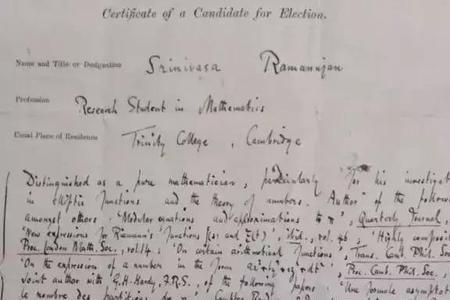 Certificate of a Candidate for Election.
Name and Title or Designation Srinivasa Ramanujan
Profession Research Student in Mathematics
Usual Place of Residence Trinity College, Cambridge
Distinguished as a pure mathematician, particularly for his investigat
in elliptic functions and the theory of numbers. Author of the follow
amongst others. 'Modular equations and approximations to π', Quarterly Journal,
'New expressions for Riemann's functions ξ(s) and Ξ(t)', ibid., vol. 46. 'Highly composi
Proc. London Math. Soc., vol. 14. 'On certain arithmetical functions', Trans. Camb. Phil. Soc.
'On the expression of a number in the form ax²+by²+cz²+dt²' Proc. Camb. Phil. Soc.,
Joint author with G.H. Hardy, F.R.S., of the following papers 'Une formule asymptot
le nombre des partitions de n',